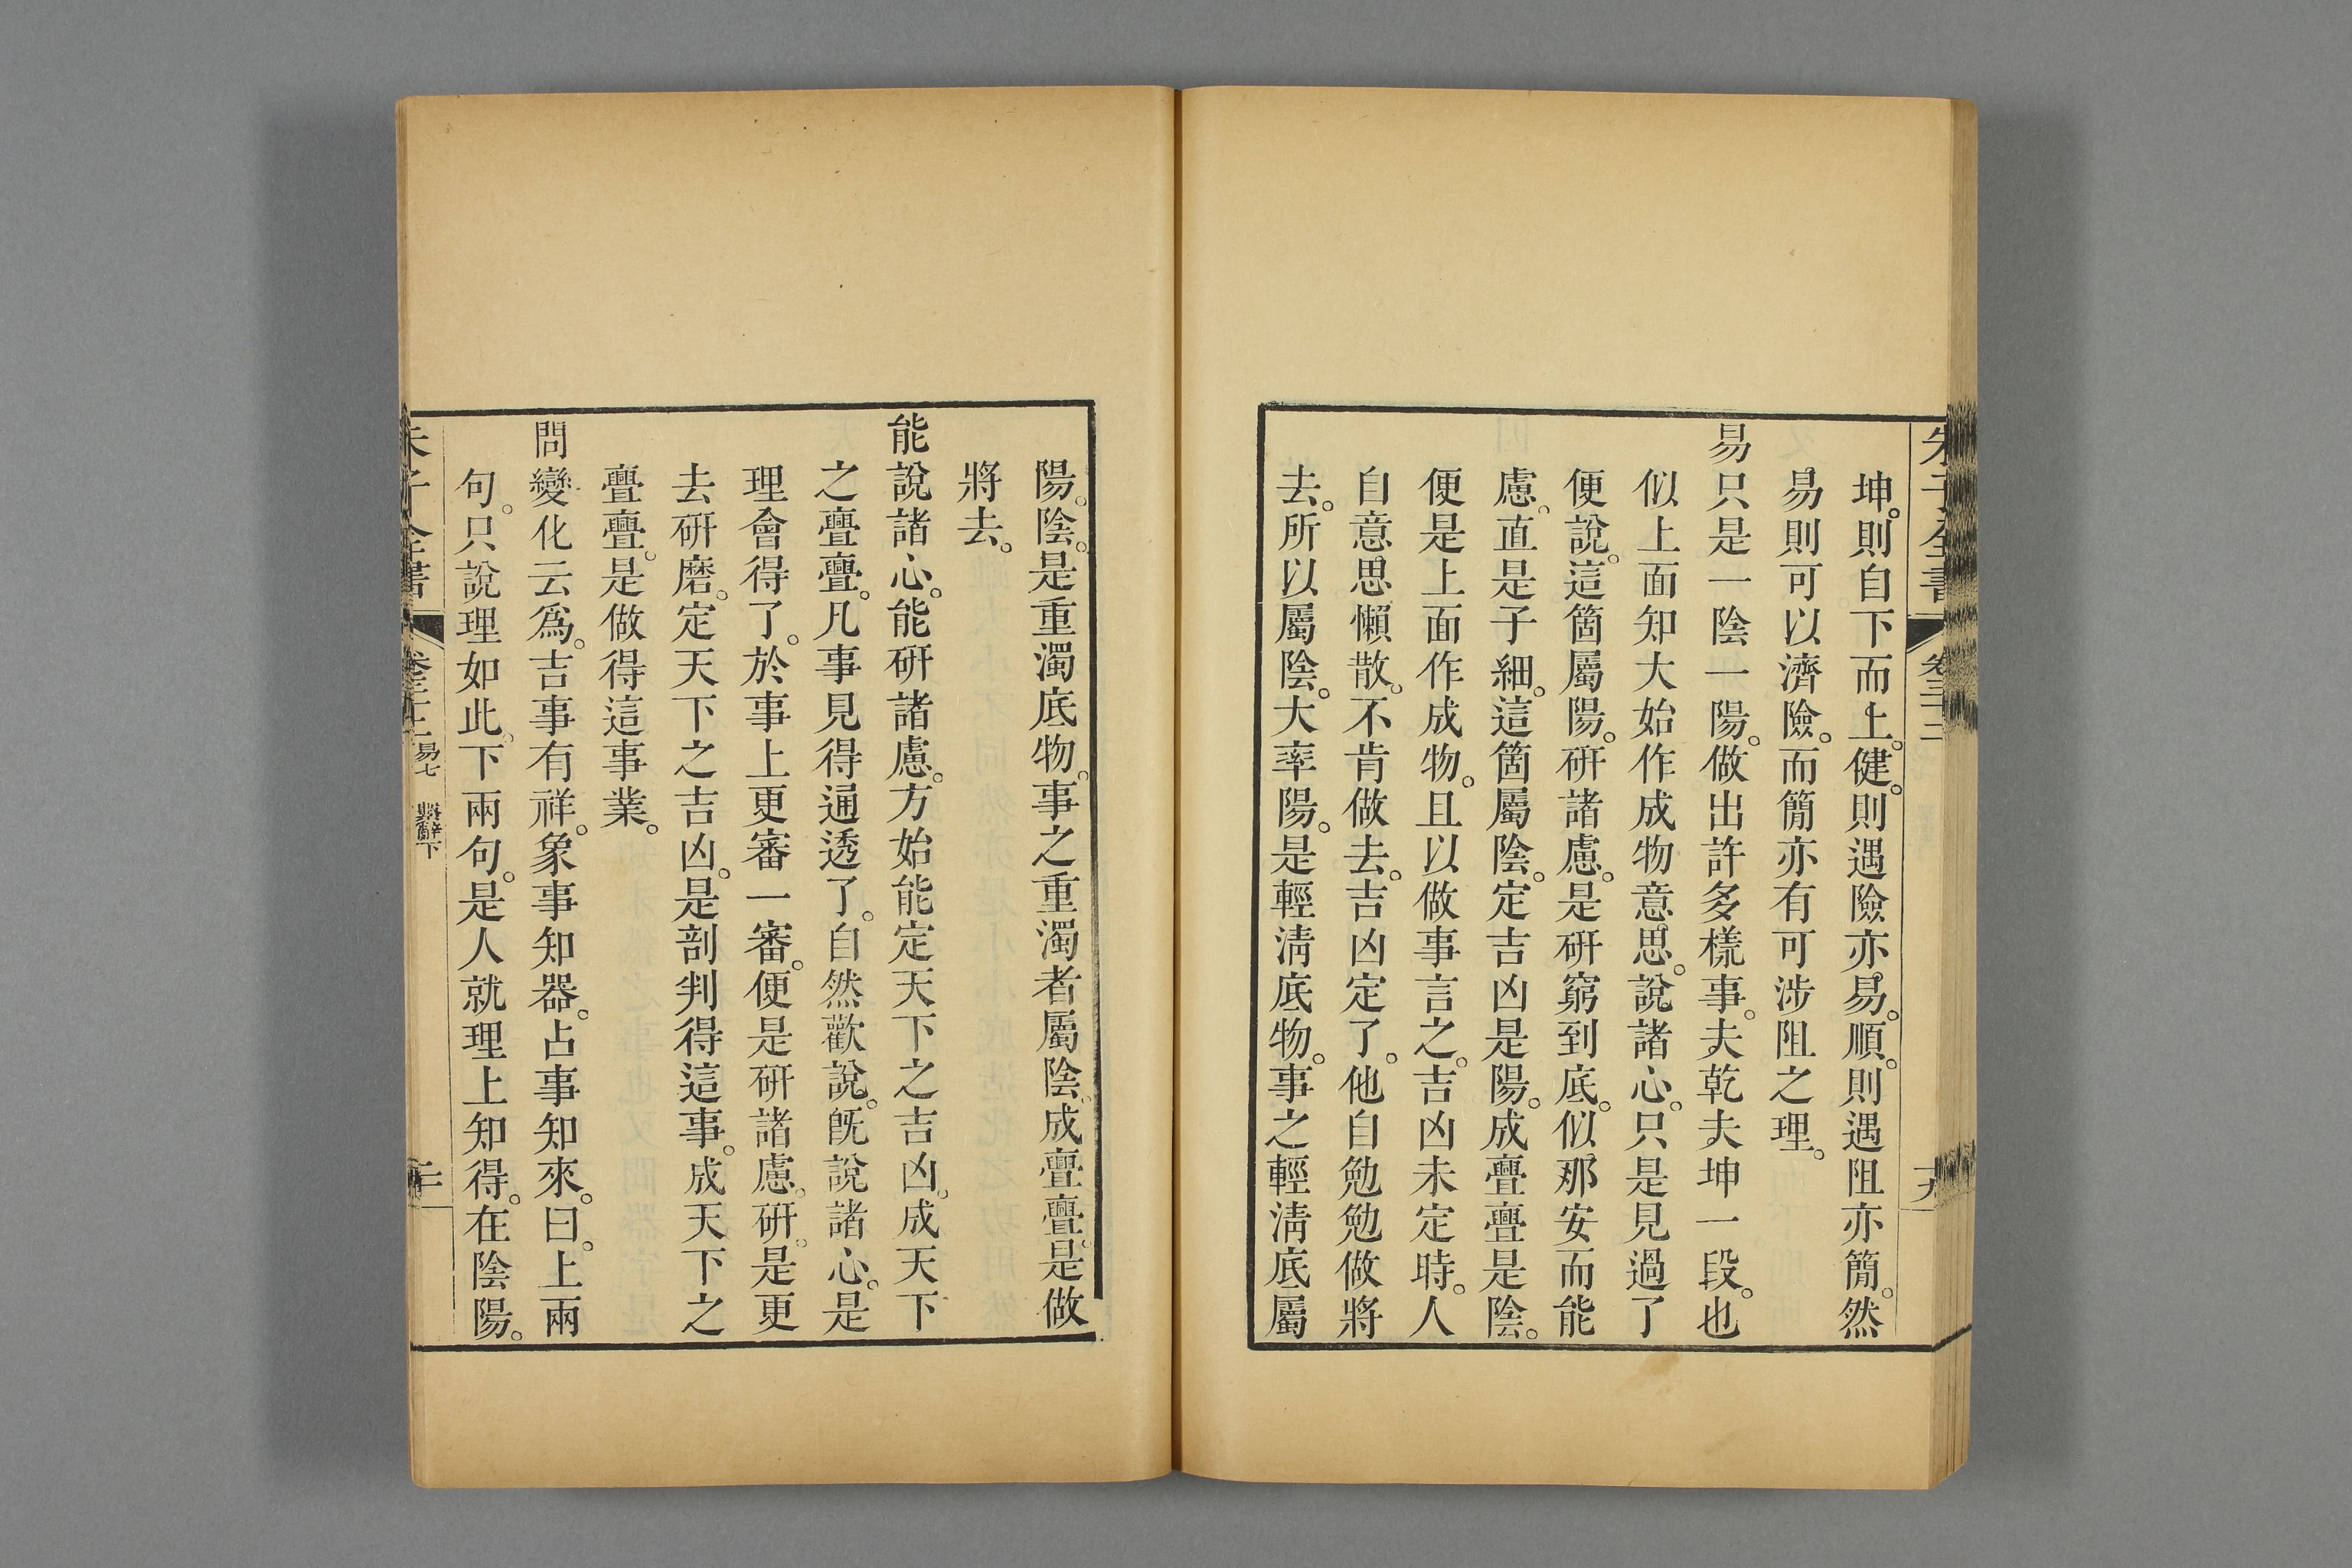 朱子全書 卷三十二 十九
坤。則自下而上。健。則遇險亦易。順。則遇阻亦簡。然
易則可以濟險。而簡亦有可涉阻之理。
易只是一陰一陽。做出許多樣事。夫乾夫坤一段。也
似上面知大始作成物意思。說諸心。只是見過了
便說。這箇屬陽。研諸慮。是研窮到底。似那安而能
慮。直是子細。這箇屬陰。定吉凶是陽。成亹亹是陰。
便是上面作成物。且以做事言之。吉凶未定時。人
自意思懶散。不肯做去。吉凶定了。他自勉勉做將
去。所以屬陰。大率陽。是輕淸底物。事之輕淸底屬
陽。陰。是重濁底物。事之重濁者屬陰。成亹亹。是做
將去。
能說諸心。能硏諸慮。方始能定天下之吉凶。成天下
之亹亹。凡事見得通透了。自然歡說。旣說諸心。是
理會得了。於事上更審一審。便是硏諸慮。硏。是更
去硏磨。定天下之吉凶。是剖判得這事。成天下之
亹亹。是做得這事業。
問變化云爲。吉事有祥。象事知器。占事知來。曰。上兩
句。只說理如此。下兩句。是人就理上知得。在陰陽。
朱子全書 卷三十二 易七 繫辭下 二十